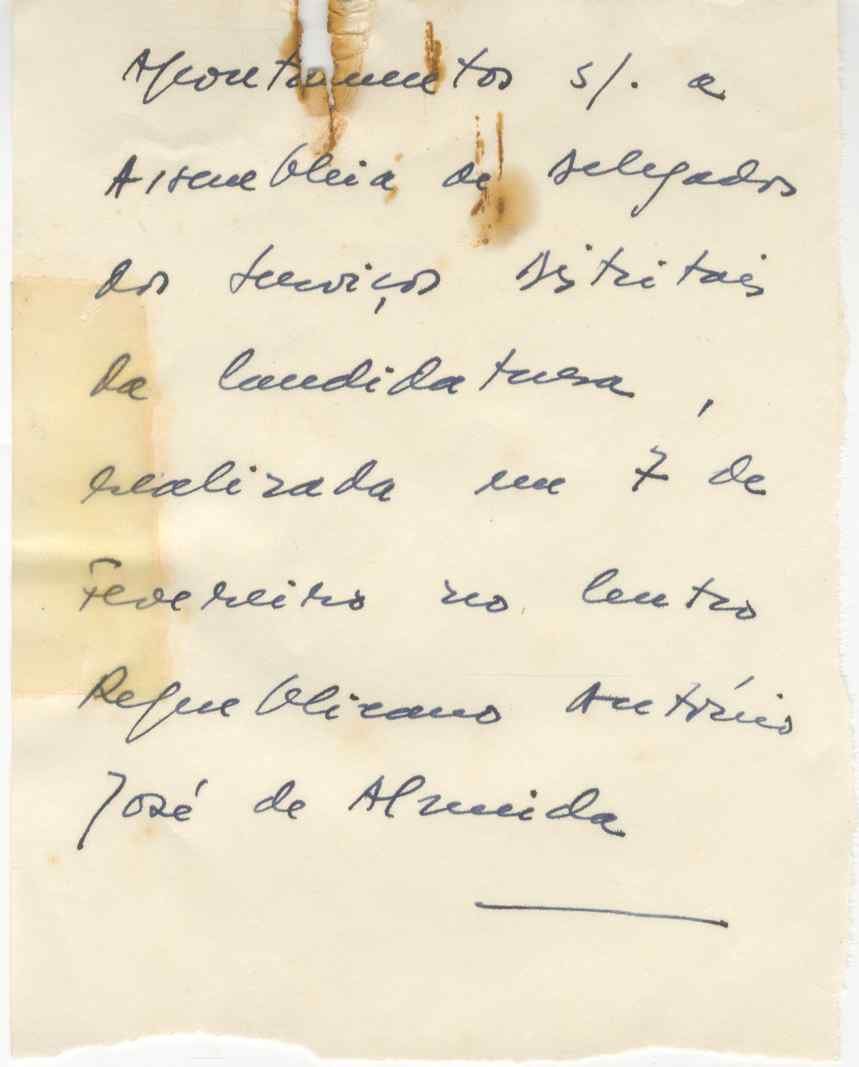 Apontamentos s/. a
Assembleia de Delegados
dos Serviços Distritais
da Candidatura,
realizada em 7 de
Fevereiro no Centro
Republicano António
José de Almeida